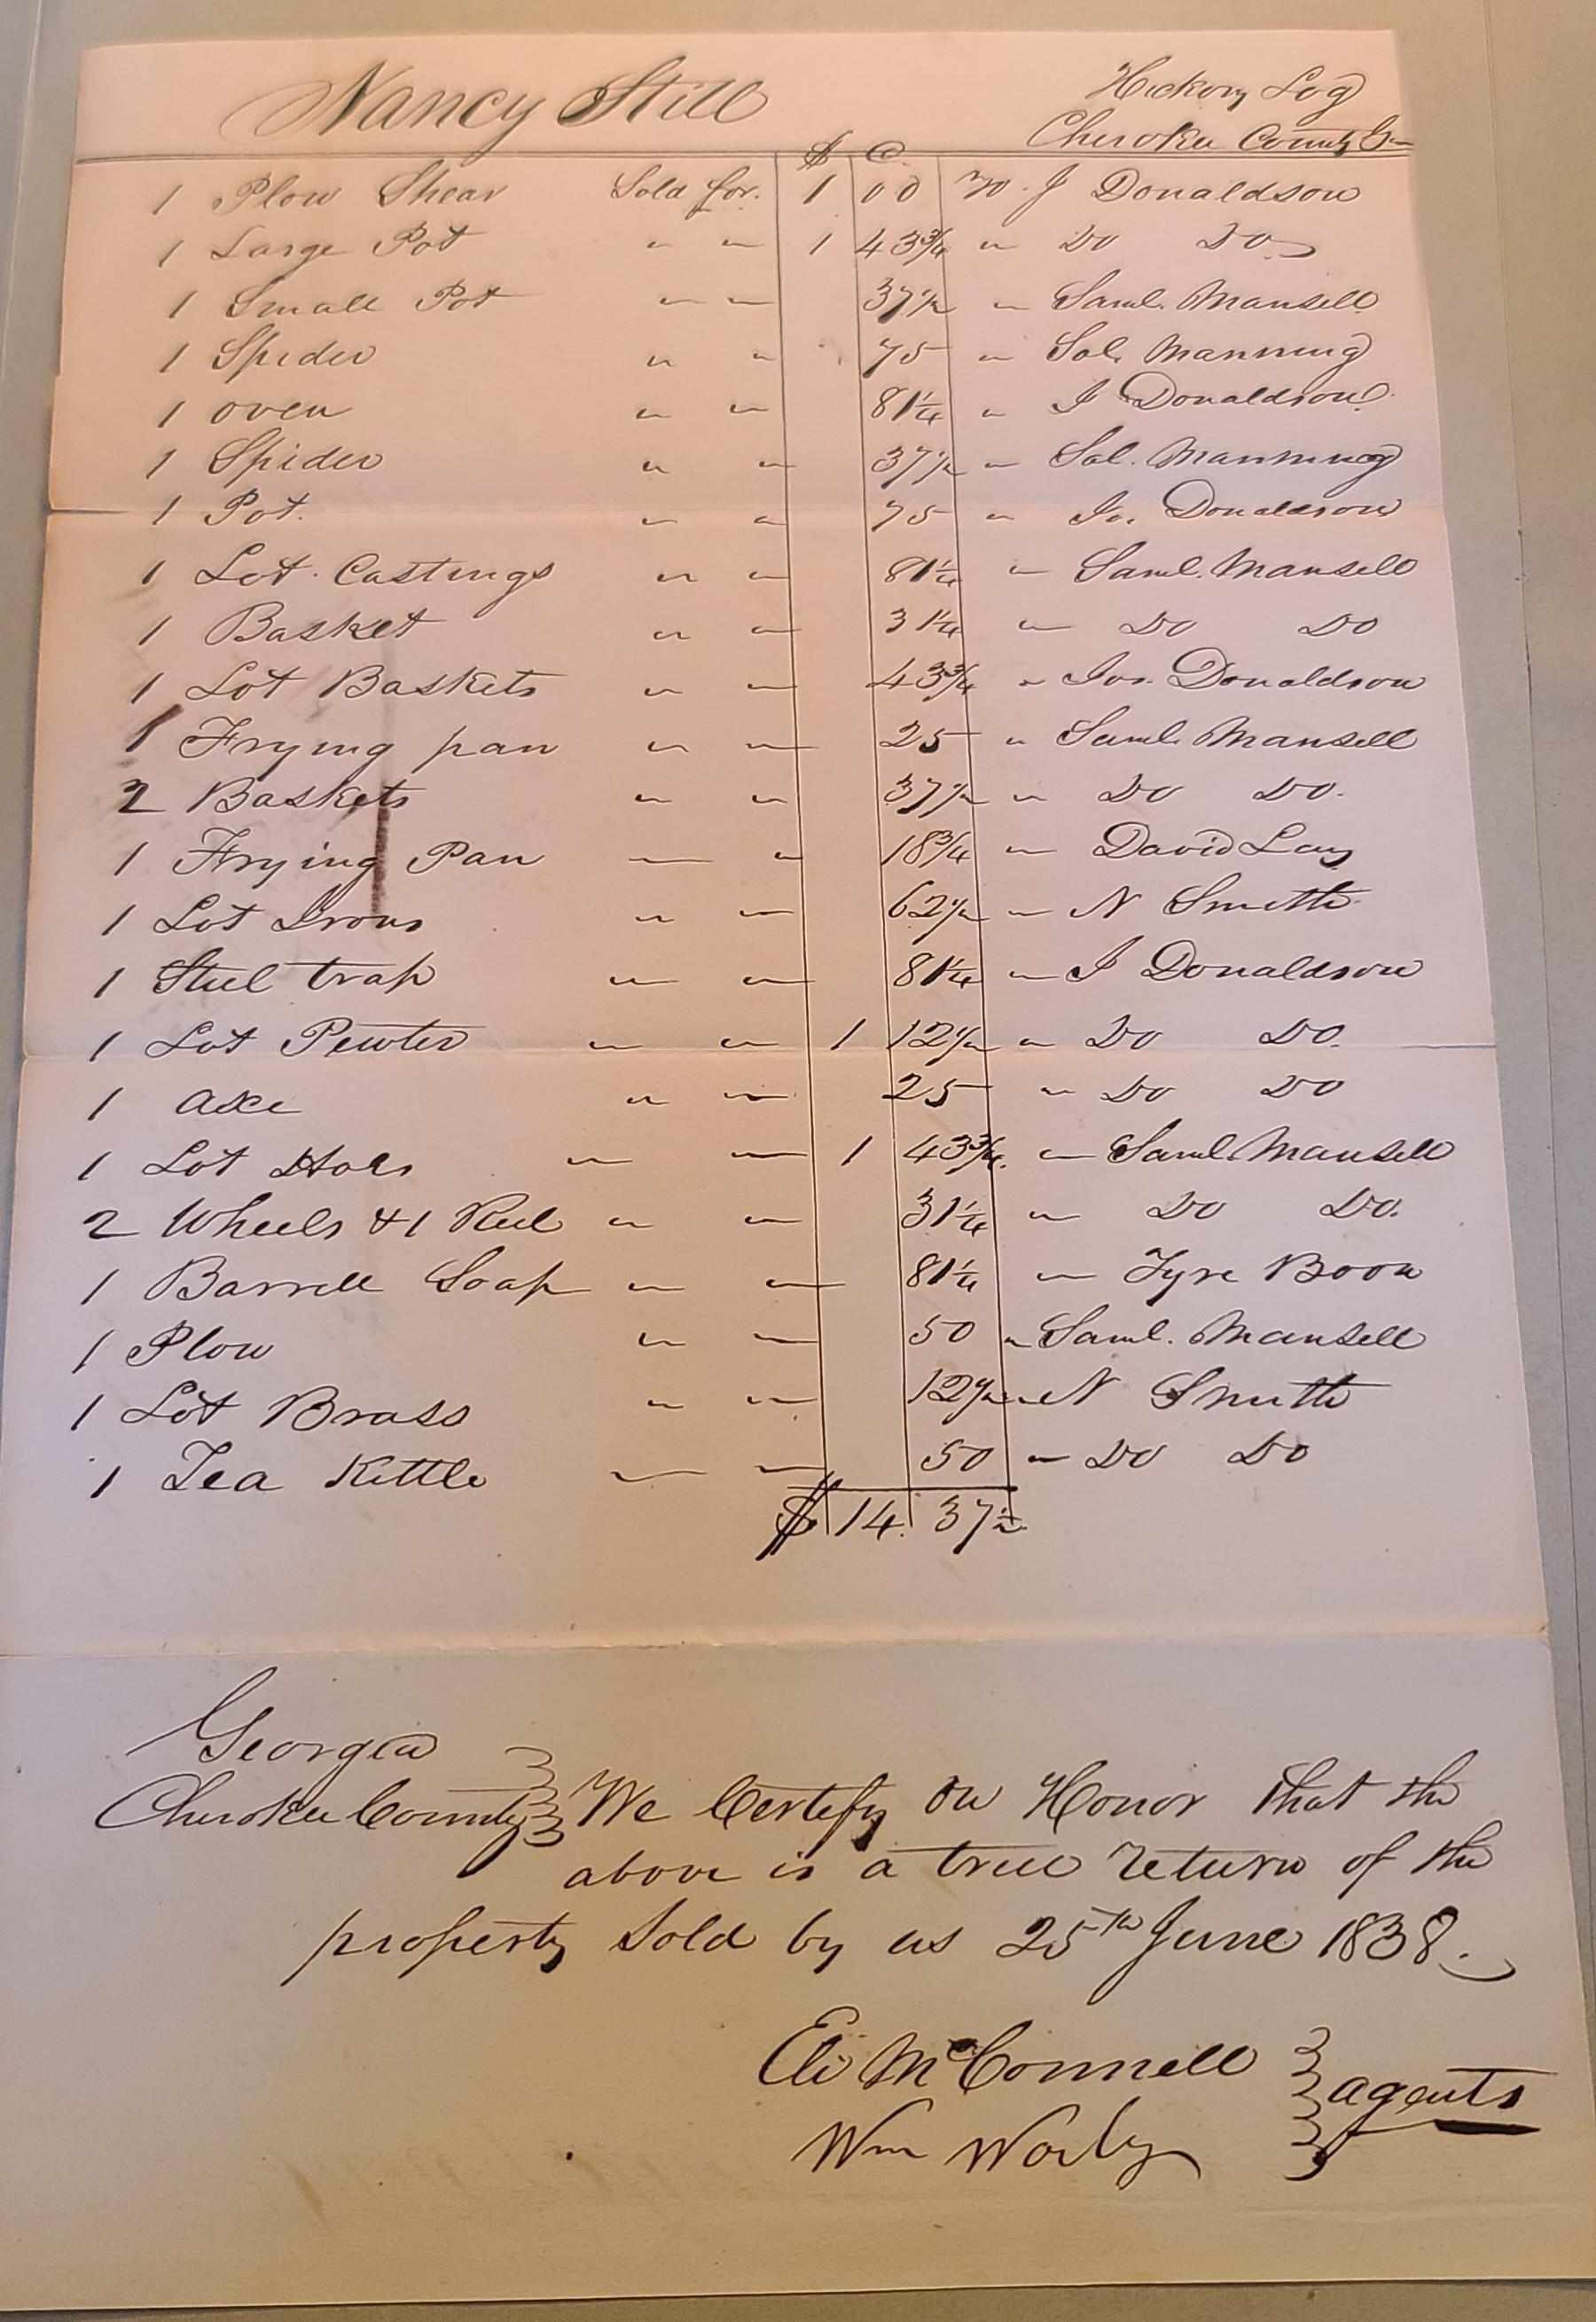 Nancy Still
Hickory Log
Cherokee County Ga
$ C.
1 Plow Shear Sold for. 1 00 To J Donaldson
1 Large Pot " " 1 43¾ " Do Do
1 Small Pot " " 37½ " Saml. Mansell
1 Spider " " 75 " Sol. Manning
1 oven " " 81¼ " J Donaldson
1 Spider " " 37½ " Sol. Manning
1 Pot. " " 75 " Jos. Donaldson
1 Lot Castings " " 81¼ " Saml. Mansell
1 Basket " " 31¼ " Do Do
1 Lot Baskets " " 43¾ " Jos. Donaldson
1 Frying pan " " 25 " Saml. Mansell
2 Baskets " " 37½ " Do Do.
1 Frying Pan " " 18¾ " David Lay
1 Lot Irons " " 62½ " N Smith
1 Steel trap " " 81¼ " J Donaldson
1 Lot Pewter " " 1 12½ " Do Do.
1 axe " " 25 " Do Do
1 Lot Hoes " " 1 43¾ " Saml. Mansell
2 Wheels & 1 Reel " " 31¼ " Do Do.
1 Barrell Soap " " 81¼ " Tyre Boon
1 Plow " " 50 " Saml. Mansell
1 Lot Brass " " 12½ " N Smith
1 Tea Kettle " " 50 " Do Do
$ 14. 37½
Georgia
Cherokee County We Certify on Honor that the
above is a true return of the
property sold by us 25th June 1838.
Eli McConnell
agents
Wm Worly